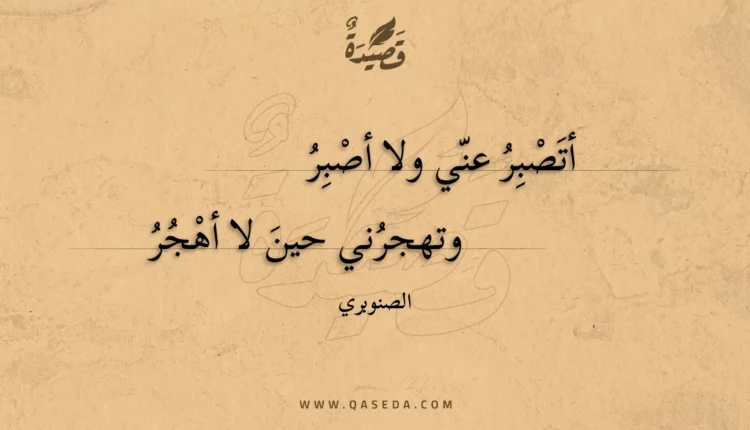 قَصِيدَةٌ
أتَصْبِرُ عنّي ولا أصْبِرُ
وتهجرُني حينَ لا أهْجُرُ
الصنوبري
WWW.QASEDA.COM